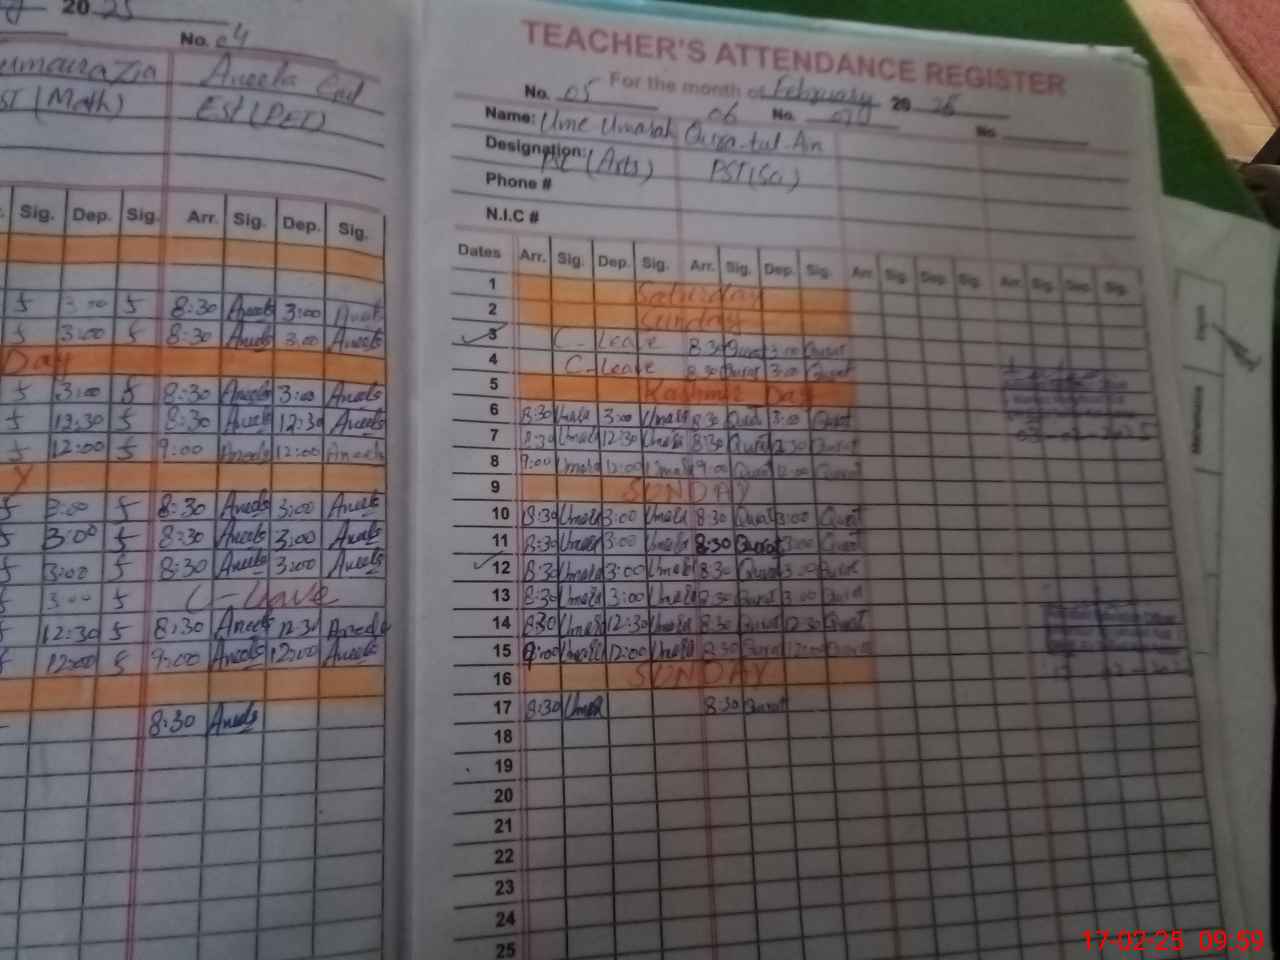 20 25
No. 04
Aneela Gul
ST (Math) EST (PET)
Sig. Dep. Sig. Arr. Sig. Dep. Sig.
5 3:00 5 8:30 Aneela 3:00 Aneela
5 3:00 5 8:30 Aneela 3:00 Aneela
Day
5 3:00 5 8:30 Aneela 3:00 Aneela
5 12:30 5 8:30 Aneela 12:30 Aneela
5 12:00 5 9:00 Aneela 12:00 Aneela
Y
5 3:00 5 8:30 Aneela 3:00 Aneela
5 3:00 5 8:30 Aneela 3:00 Aneela
5 3:00 5 8:30 Aneela 3:00 Aneela
5 3:00 5 C-Leave
5 12:30 5 8:30 Aneela 12:30 Aneela
5 12:00 5 9:00 Aneela 12:00 Aneela
8:30 Aneela
TEACHER'S ATTENDANCE REGISTER
For the month of February 20 25
No. 05 06 No. No.
Name: Ume Umarah Qura-tul-Ain
Designation: PST (Arts) PST (Sci)
Phone #
N.I.C #
Dates Arr. Sig. Dep. Sig. Arr. Sig. Dep. Sig. Arr. Sig. Dep. Sig. Arr. Sig. Dep. Sig.
1 Saturday
2 Sunday
3 C-Leave 8:30 Qurat 3:00 Qurat
4 C-Leave 8:30 Qurat 3:00 Qurat
5 Kashmir Day
6 8:30 Umara 3:00 Umara 8:30 Qurat 3:00 Qurat
7 8:30 Umara 12:30 Umara 8:30 Qurat 12:30 Qurat
8 9:00 Umara 12:00 Umara 9:00 Qurat 12:00 Qurat
9 SUNDAY
10 8:30 Umara 3:00 Umara 8:30 Qurat 3:00 Qurat
11 8:30 Umara 3:00 Umara 8:30 Qurat 3:00 Qurat
12 8:30 Umara 3:00 Umara 8:30 Qurat 3:00 Qurat
13 8:30 Umara 3:00 Umara 8:30 Qurat 3:00 Qurat
14 8:30 Umara 12:30 Umara 8:30 Qurat 12:30 Qurat
15 9:00 Umara 12:00 Umara Qurat 12:00 Qurat
16 SUNDAY
17 8:30 Umara 8:30 Qurat
18
19
20
21
22
23
24
25
17-02-25 09:59